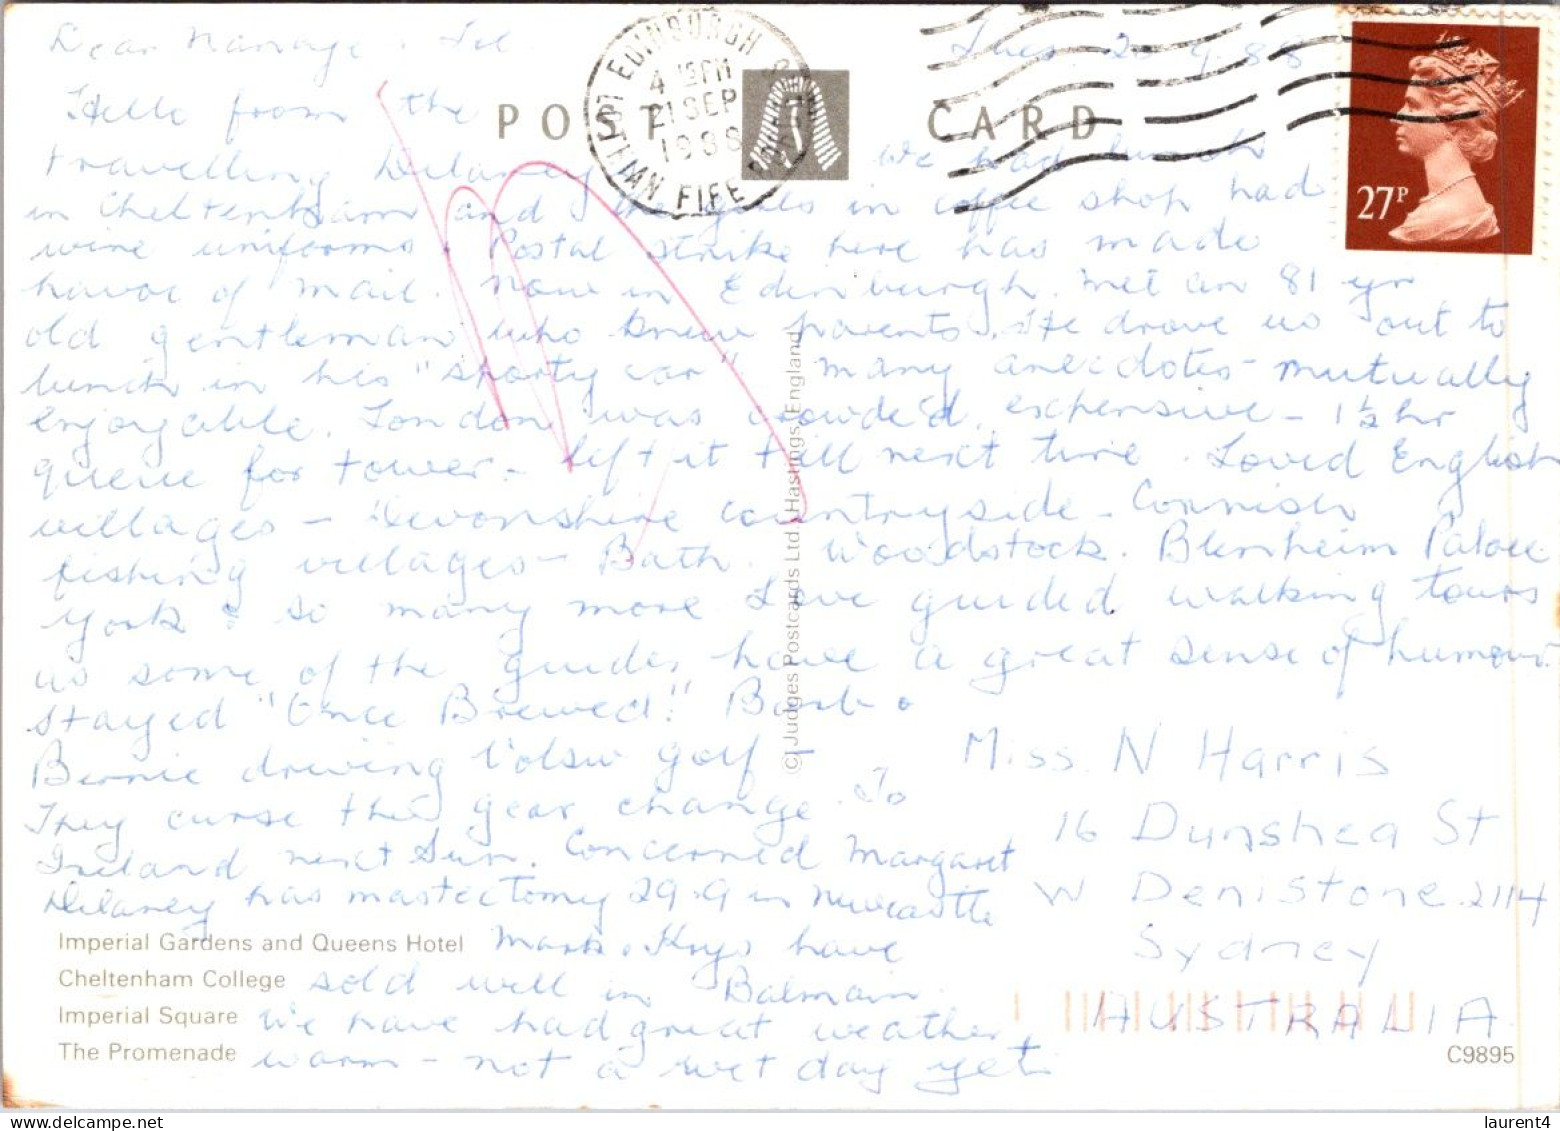 Dear Tues. 20 9.88
Hello from the
POST CARD
EDINBURGH
4 15PM
21 SEP
1988
LOTHIAN FIFE
27P
travelling Delaneys We had lunch
in Cheltenham and the girls in coffee shop had
wine uniforms. Postal strike here has made
havoc of mail. Now in Edinburgh. Met an 81 yr
old gentleman who knew parents. He drove us out to
lunch in his "shorty car" many anecdotes - mutually
enjoyable. London was crowded, expensive - 1½ hr
queue for tower - left it till next time. Loved English
villages - Devonshire countryside - Cornish
fishing villages - Bath. Woodstock. Blenheim Palace
York & so many more Love guided walking tours
as some of the guides have a great sense of humour.
Stayed "Once Brewed." Barb &
Bernie driving Volsw golf -
They curse the gear change. To
Ireland next Sun. Concerned Margaret
Delaney has mastectomy 29.9 in Newcastle
Mark & have
sold well in Balmain
We have had great weather,
warm - not a wet day yet.
Miss N Harris
16 Dunshea St
W Denistone. 2114
Sydney
AUSTRALIA
Imperial Gardens and Queens Hotel
Cheltenham College
Imperial Square
The Promenade
© Judges Postcards Ltd, Hastings, England
C9895
laurent4